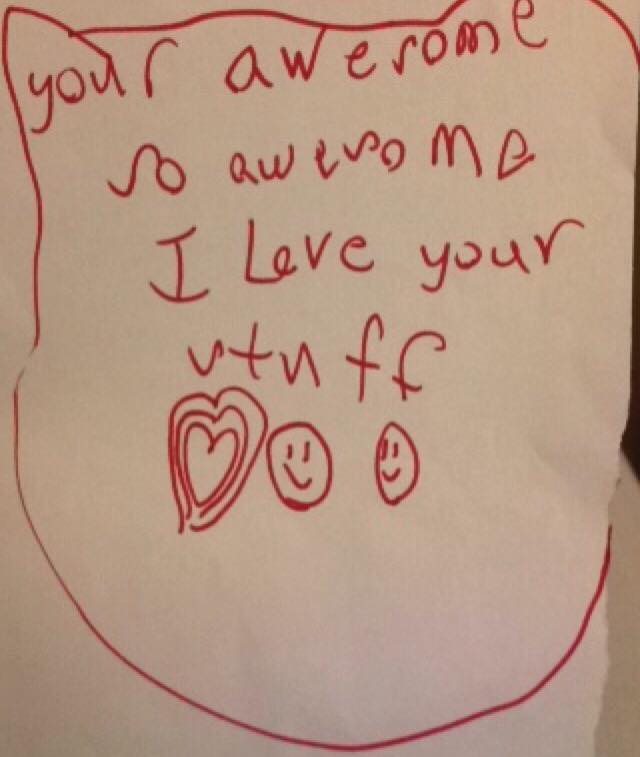 your awesome
so awesome
I Love your
stuff